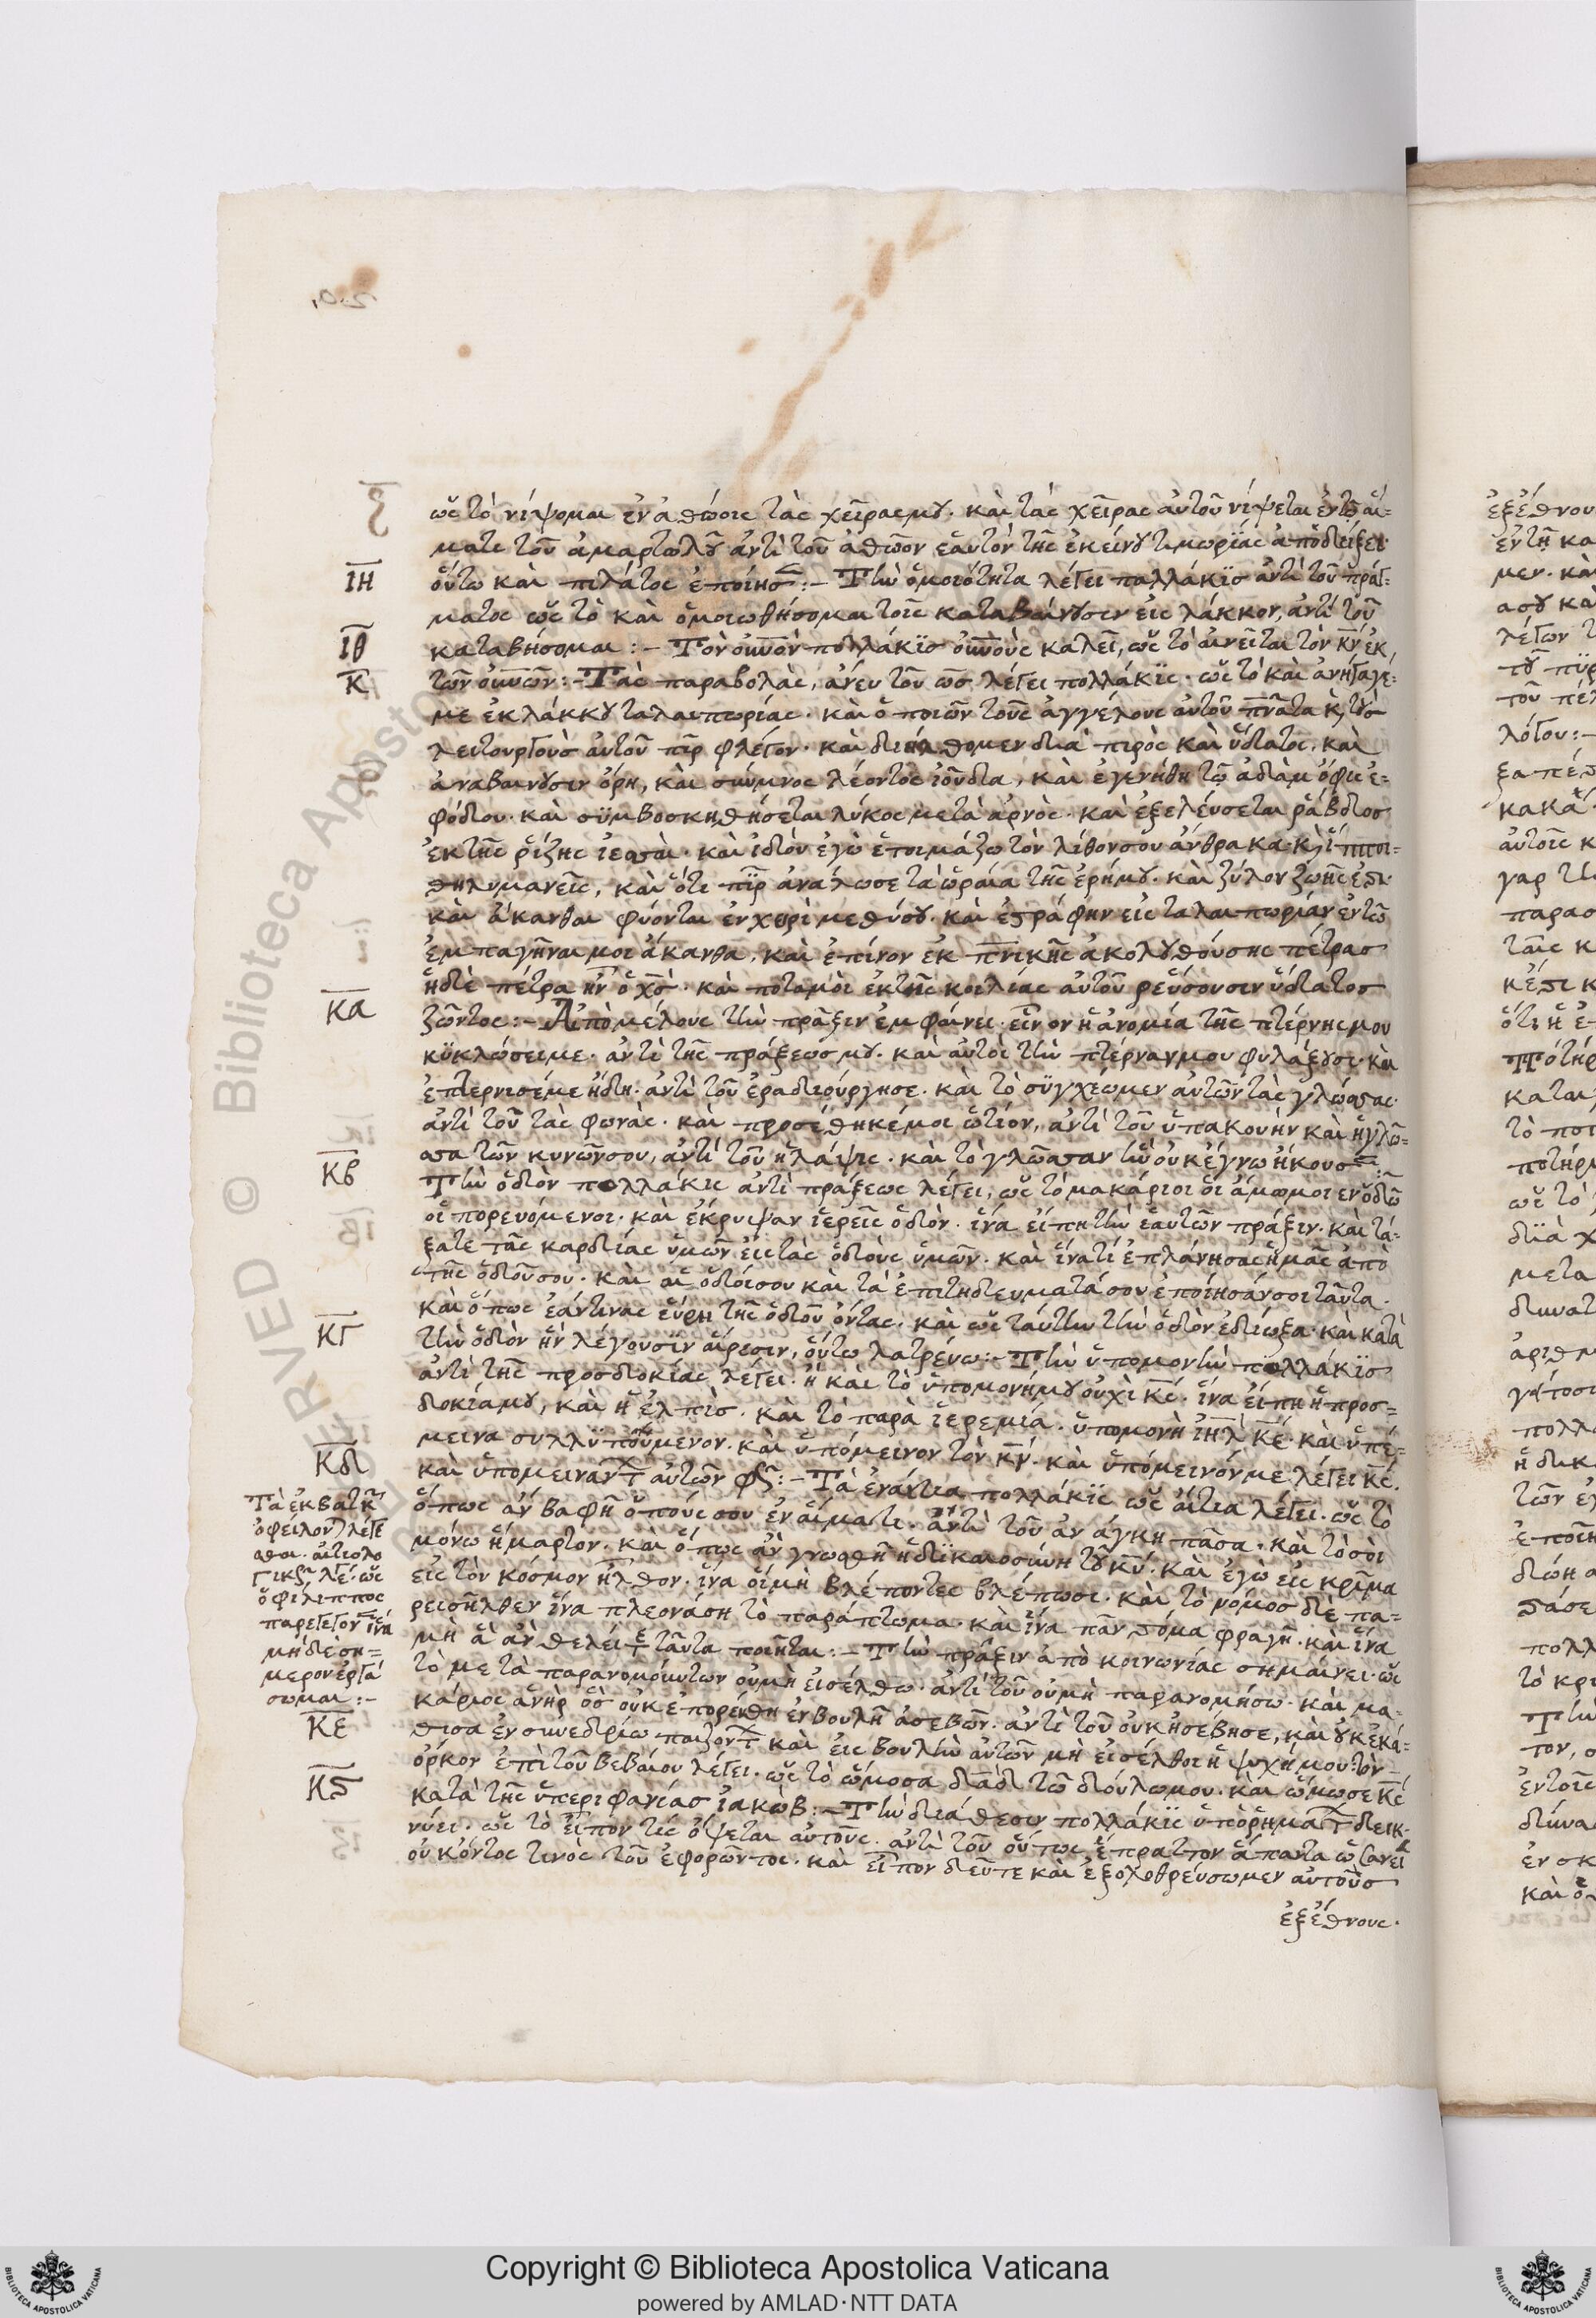 ὡς τὸ νίψομαι ἐν ἀθώοις τὰς χεῖρας μου. καὶ τὰς χεῖρας αὐτοῦ νίψεται ἐν τῶ αἵ-
ματι τοῦ ἁμαρτωλοῦ ἀντὶ τοῦ ἀθῶον ἑαυτὸν τῆς ἐκείνου τιμωρίας ἀποδείξει·
ΙΗ οὕτω καὶ πιλάτος ἐποίησ:- Τὴν ὁμοιότητα λέγει πολλάκις ἀντὶ τοῦ πράγ-
ματος ὡς τὸ καὶ ὁμοιωθήσομαι τοῖς καταβαίνουσιν εἰς λάκκον, ἀντὶ τοῦ
ΙΘ καταβήσομαι:- Τὸν οὐνὸν πολλάκις οὐνοὺς καλεῖ, ὡς τὸ αἰνεῖται τὸν κν ἐκ
Κ τῶν οὐνῶν:- Τὰς παραβολὰς, ἄνευ τοῦ ὡς λέγει πολλάκις. ὡς τὸ καὶ ἀνήγαγέ-
με ἐκ λάκκου ταλαιπωρίας. καὶ ὁ ποιῶν τοὺς ἀγγέλους αὐτοῦ πνατα κ τοὺς
λειτουργοὺς αὐτοῦ πῦρ φλέγον. καὶ διήλθομεν διὰ πυρὸς καὶ ὕδατος. καὶ
ἀναβαίνουσιν ὄρη, καὶ σκύμνος λέοντος ἰούδα, καὶ ἐγενήθη τῶ ἀδὰμ ὄφις ἐ-
φόδιου. καὶ συμβοσκηθήσεται λύκος μετὰ ἀρνὸς. καὶ ἐξελεύσεται ῥάβδος
ἐκ τῆς ῥίζης ἰεσσαί. καὶ ἰδιὸν ἐγὼ ἑτοιμάζω τὸν λίθον σου ἄνθρακα. κ ἵπποι-
θηλυμανεῖς, καὶ ὅτι πῦρ ἀνάλωσε τὰ ὡραία τῆς ἐρήμου. καὶ ξύλον ζωῆς ἐστι·
καὶ ἄκανθαι φύονται ἐν χειρὶ μεθύσου. καὶ ἐστράφην εἰς ταλαιπωρίαν ἐν τῶ
ἐμπαγῆναι μοι ἄκανθα. καὶ ἐπίνον ἐκ πνικῆς ἀκολουθούσης πέτρας
ἡ δὲ πέτρα ἦν ὁ χσ. καὶ ποταμοὶ ἐκ τῆς κοιλίας αὐτοῦ ρεύσουσιν ὕδατος
ΚΑ ζῶντος:- Ἀπὸ μέλους τὴν πρᾶξιν ἐμφαίνει. εἶν ον ἡ ἀνομία τῆς πτέρνης μου
κυκλώσει με. ἀντὶ τῆς πράξεώς μου. καὶ αὐτοὶ τὴν πτέρναν μου φυλάξουσι. καὶ
ἐπτέρνισέ με ἤδη. ἀντὶ τοῦ ἐραδιούργησε. καὶ τὸ συγχέωμεν αὐτῶν τὰς γλώσσας.
ἀντὶ τοῦ τὰς φωνὰς. καὶ προσέθηκέ μοι ὠτίον, ἀντὶ τοῦ ὑπακούην καὶ ἡ γλῶ-
σσα τῶν κυνῶν σου, ἀντὶ τοῦ ἡ λάψις. καὶ τὸ γλῶσσαν ἣν οὐκ ἔγνω ἤκουσ:-
ΚΒ Τὴν ὁδὸν πολλάκις ἀντὶ πράξεως λέγει, ὡς τὸ μακάριοι οἱ ἄμωμοι ἐν ὁδῶ
οἱ πορευόμενοι. καὶ ἔκρυψαν ἱερεῖς ὁδὸν. ἵνα εἴπη τὴν ἑαυτῶν πρᾶξιν. καὶ τά-
ξατε τὰς καρδίας ὑμῶν εἰς τὰς ὁδοὺς ὑμῶν. καὶ ἵνα τί ἐπλάνησας ἡμᾶς ἀπὸ
τῆς ὁδοῦ σου. καὶ αἱ ὁδοί σου καὶ τὰ ἐπιτηδεύματά σου ἐποίησάν σοι ταῦτα.
καὶ ὅπως ἐάν τινας εὕρη τῆς ὁδοῦ ὄντας. καὶ ὡς ταύτην τὴν ὁδὸν ἐδίωξα. καὶ κατὰ
ΚΓ τὴν ὁδὸν ἣν λέγουσιν αἵρεσιν, οὕτω λατρεύω:- Τὴν ὑπομονὴν πολλάκις
ἀντὶ τῆς προσδοκίας λέγει. ἢ καὶ τὸ ὑπομονή μου οὐχὶ κς. ἵνα εἴπη ἡ προσ-
δοκία μου, καὶ ἡ ἐλπὶς. καὶ τὸ παρὰ ἱερεμία. ὑπομονὴ ιηλ κε. καὶ ὑπέ-
μεινα συλλυπούμενον. καὶ ὑπόμεινον τὸν κν. καὶ ὑπόμεινόν με λέγει κς.
ΚΔ καὶ ὑπομεινάντ αὐτῶν φς:- Τὰ ἐνάντια πολλάκις ὡς αἴτια λέγει. ὡς τὸ
ὅπως ἂν βαφῆ ὁ πούς σου ἐν αἵματι. ἀντὶ τοῦ ἀνάγκη πᾶσα. καὶ τὸ σοὶ
μόνω ἥμαρτον. καὶ ὅπως ἂν γνωσθῆ ἡ δικαιοσύνη τοῦ κυ. καὶ ἐγὼ εἰς κρῖμα
εἰς τὸν κόσμον ἦλθον. ἵνα οἱ μὴ βλέποντες βλέπωσι. καὶ τὸ νόμος δὲ πα-
ρεισῆλθεν ἵνα πλεονάση τὸ παράπτωμα. καὶ ἵνα πᾶν στόμα φραγῆ. καὶ ἵνα
μὴ ἃ ἂν θέλει τ ταῦτα ποιῆται:- Τὴν πρᾶξιν ἀπὸ κοινωνίας σημαίνει. ὡς
τὸ μετὰ παρανομούντων οὐ μὴ εἰσέλθω. ἀντὶ τοῦ οὐ μὴ παρανομήσω. καὶ μα-
κάριος ἀνὴρ ὃς οὐκ ἐπορεύθη ἐν βουλῆ ἀσεβῶν. ἀντὶ τοῦ οὐκ ἠσέβησε, καὶ οὐκ ἐκά-
θισα ἐν συνεδρίω παιζοντ καὶ εἰς βουλὴν αὐτῶν μὴ εἰσέλθοι ἡ ψυχή μου: τὸν
ὅρκον ἐπὶ τοῦ βεβαίου λέγει. ὡς τὸ ὤμοσα δαδ τῶ δούλω μου. καὶ ὤμοσε κς
ΚϚ κατὰ τῆς ὑπεριφανίας ἰακὼβ:- Τὴν διάθεσιν πολλάκις ὑπὸ ῥηματ δεικ-
νύει. ὡς τὸ εἶπον τίς ὄψεται αὐτοὺς. ἀντὶ τοῦ οὕτως ἔπραττον ἅπαντα ὡσανεὶ
οὐκ ὄντος τινὸς τοῦ ἐφορῶντος. καὶ εἶπον δεῦτε καὶ ἐξολοθρεύσωμεν αὐτοὺς
ἐξ ἔθνους.
Τὰ ἐκβατικ
ὀφείλον λέγε
σθαι. αἰτιολο
γικῶ λέ. ὡς
ὁ φίλιππος
παρεγεγον ἵνα
μὴ δὲ ση-
μερον ἐργά
σωμαι:-
ΚΕ
Copyright © Biblioteca Apostolica Vaticana
powered by AMLAD·NTT DATA